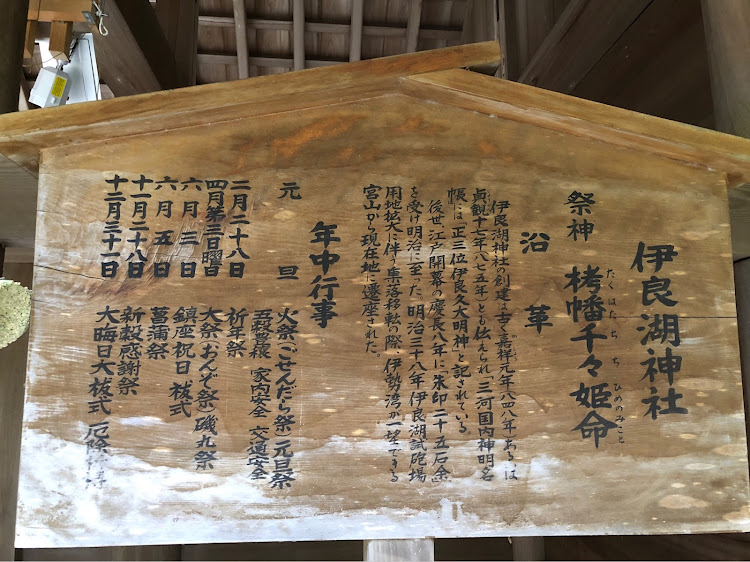 伊良湖神社
祭神 栲幡千々姫命
たくはた ち ち ひめのみこと
沿革
伊良湖神社の創建は古く嘉祥元年(八四八年)あるは
貞観十七年(八七五年)とも伝えられ「三河国内神明名
帳」には「正三位伊良久大明神」と記されている
後世江戸開幕の慶長八年に朱印二十五石余
を受け明治に至った。明治三十八年伊良湖試砲場
用地拡大に伴う集落移転の際、伊勢湾が一望できる
宮山から現在地に遷座された
年中行事
元旦 火祭(ごせんだら祭)元旦祭
五穀豊穣 家内安全 交通安全
二月二十八日 祈年祭
四月第三日曜日 大祭(おんぞ祭)磯丸祭
六月三日 鎮座祝日祓式
六月五日 菖蒲祭
十一月二十八日 新穀感謝祭
十二月三十一日 大晦日大祓式